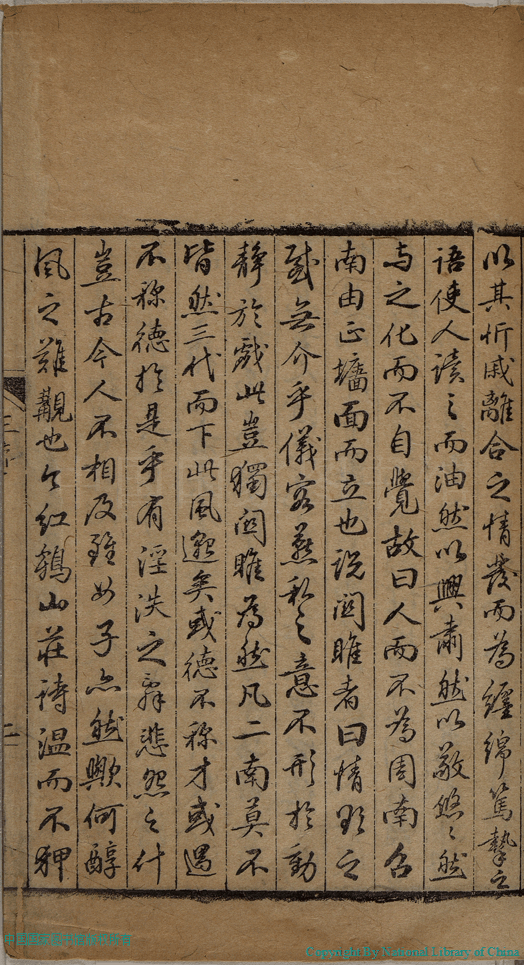 以其忻戚離合之情發而為纏綿篤摯之
語使人讀之而油然以興肅然以敬悠〻然
与之化而不自覺故曰人而不為周南召
南由正墻面而立也說関雎者曰情欲之
感無介乎儀容燕私之意不形於動
靜於戲此豈獨関雎為然凡二南莫不
皆然三代而下此風邈矣或德不称才或遇
不称德於是乎有淫泆之辭悲怨之什
豈古今人不相及雖女子亦然歟何醇
風之難覯也今紅鵝山莊詩温而不狎
二
Copyright by National Library of China